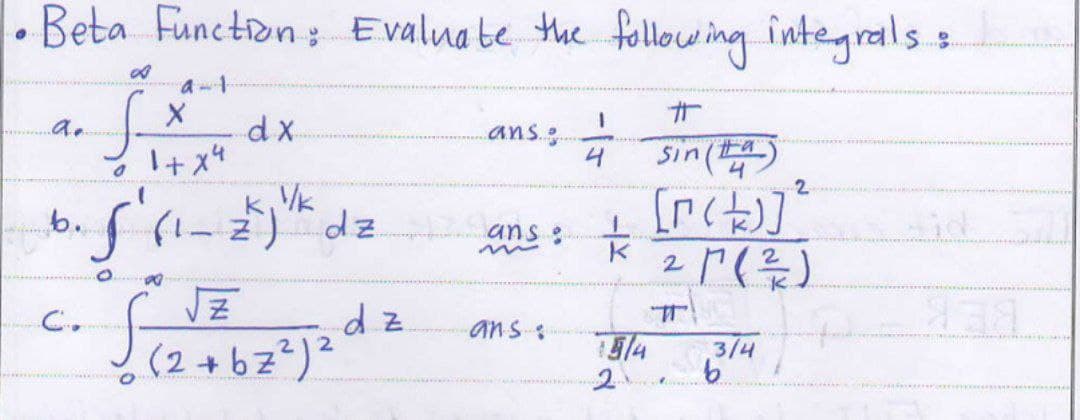 • Beta Function: Evaluate the following integrals:
a. ∫₀^∞ x^(a-1) / (1 + x⁴) dx ans: 1/4 π / sin(πa/4)
b. ∫₀^1 (1 - z^k)^(1/k) dz ans: 1/k [Γ(1/k)]² / 2Γ(2/k)
c. ∫₀^∞ √z / (2 + bz²)² dz ans: π / 2^(15/4) . b^(3/4)